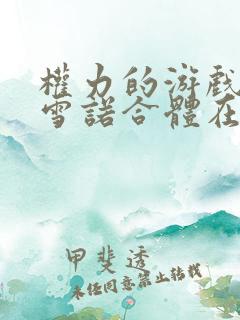 權力的游戲
雪諾合體在
甲斐透
未经同意禁止转载